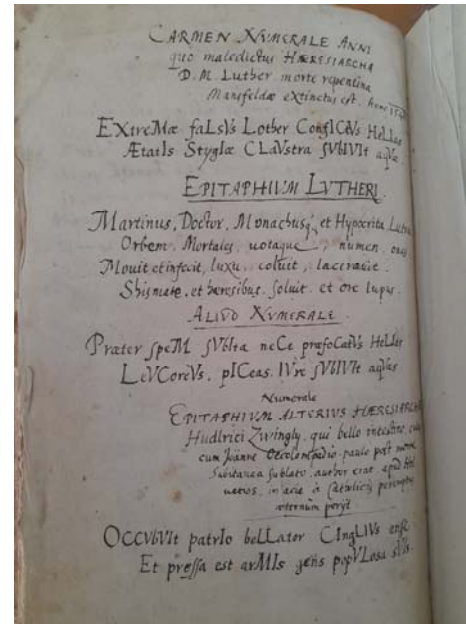 CARMEN NVMERALE ANNI
quo maledictus HÆRESIARCHA
D. M. Luther morte repentina
Mansfeldæ eXtinctus est.
EXtreMæ faLsVs Lother ConfICItVs HeLLas
ÆtatIs StygIæ CLaVstra sVbIVIt aqVæ
EPITAPHIVM LVTHERI.
Martinus, Doctor, Monachusq́, et Hypocrita
Orbem. Mortales, uotaque, numen. oues
Mouit et infecit, luxu, coluit, lacerauit.
Shismate, et hæresibus. soluit. et ore lupus.
ALIVD NVMERALE.
Præter speM sVbIta neCe præfoCatVs HeLLas
LeVCoreVs, pICeas. IVre sVbIVIt aqVas
Numerale
EPITAPHIVM ALTERIUS HÆRESIARCHÆ
Huldrici Zwingly, qui bello intestino, cuius
cum Joanne Oecolompadio paulo post morte
Subitanea sublato, author erat, apud Hel
uetios, in acie à Catholicis peremptus
æternum perijt
OCCVbVIt patrIo beLLator CIngLIVs ense
Et pressa est arMIs gens popVLosa sVIs.